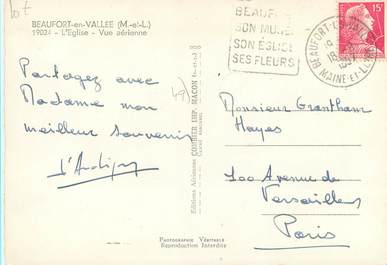 BEAUFORT-en-VALLEE (M.-et-L.)
19024 - L'Eglise - Vue aérienne
BEAUFORT
SON MUSÉE
SON ÉGLISE
SES FLEURS
15F
MAINE-ET-LOIRE
Partagez avec
Madame mon
meilleur souvenir
49
Editions Aériennes COMBIER IMP. MACON
Monsieur Grantham
Hayes
100 Avenue de
Versailles
Paris
PHOTOGRAPHIE VÉRITABLE
Reproduction Interdite